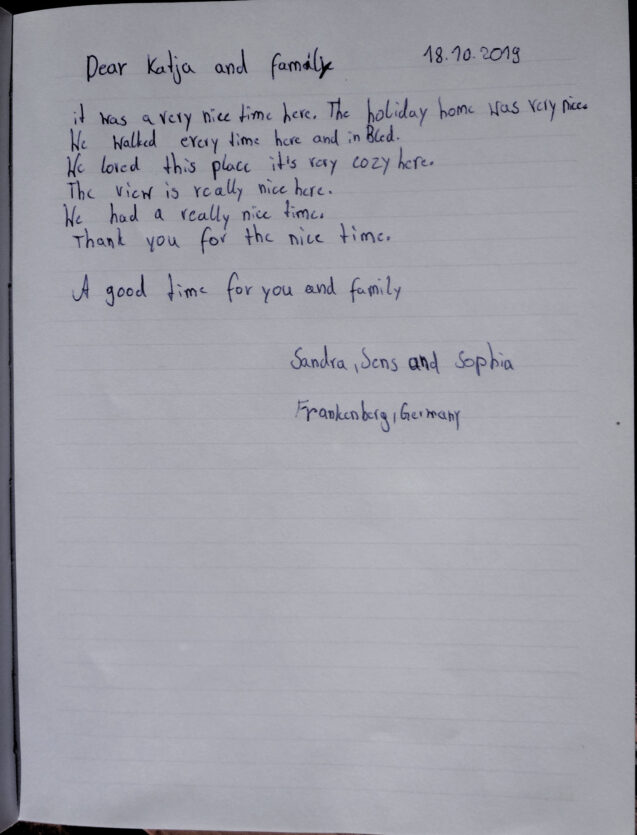 Dear Katja and family 18.10.2019
it was a very nice time here. The holiday home was very nice.
We walked every time here and in Bled.
We loved this place it's very cozy here.
The view is really nice here.
We had a really nice time.
Thank you for the nice time.
A good time for you and family
Sandra, Jens and Sophia
Frankenberg, Germany